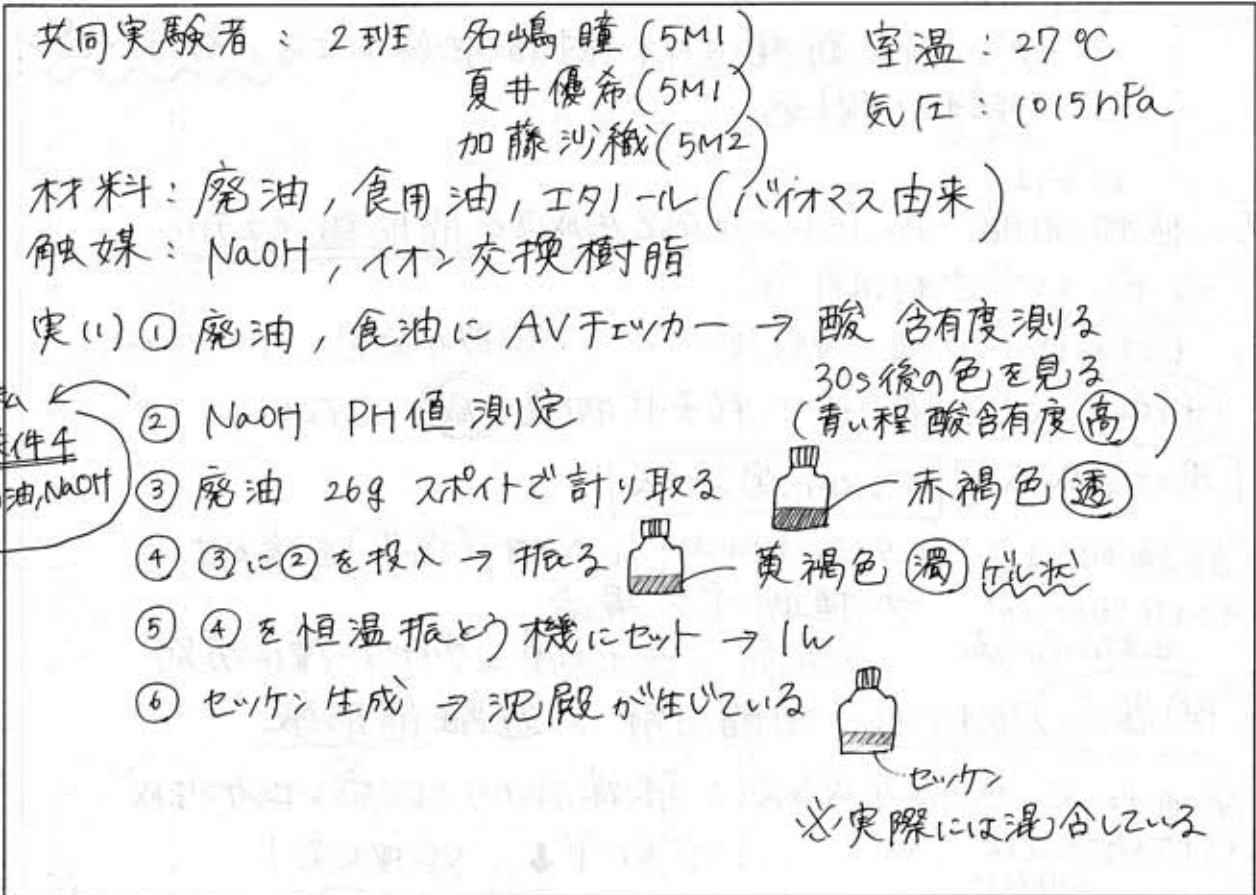 共同実験者：2班 名嶋瞳(5M1) 室温：27℃
夏井優希(5M1) 気圧：1015hPa
加藤沙織(5M2)
材料：廃油，食用油，エタノール(バイオマス由来)
触媒：NaOH，イオン交換樹脂
実(1)① 廃油，食油にAVチェッカー → 酸含有度測る
30s後の色を見る
(青い程酸含有度高)
② NaOH PH値測定
条件4
油,NaOH
③ 廃油 26g スポイトで計り取る 赤褐色透
④ ③に②を投入→振る 黄褐色濁 ゲル状
⑤ ④を恒温振とう機にセット → 1w
⑥ セッケン生成 → 沈殿が生じている
セッケン
※実際には混合している